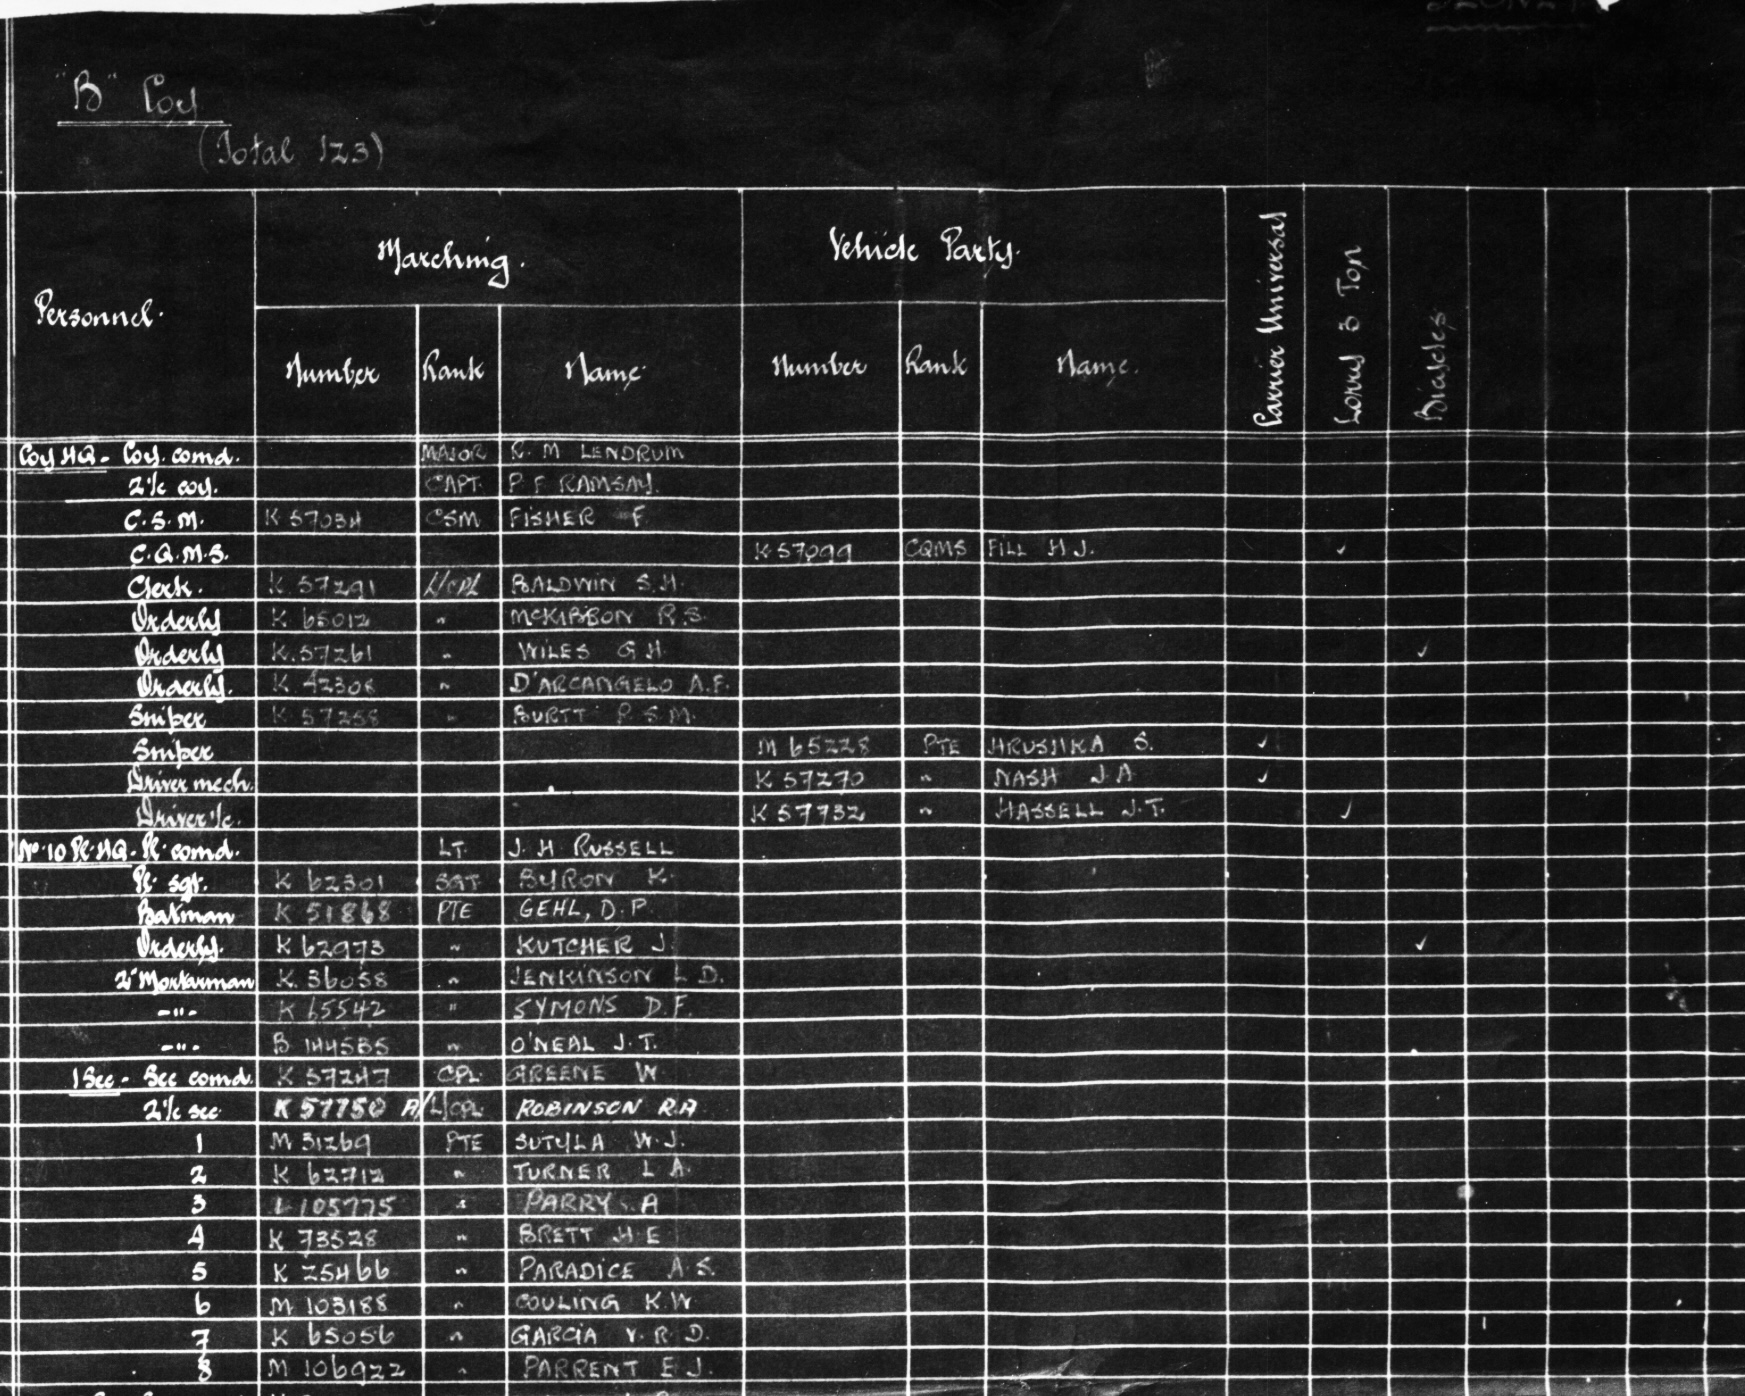 "B" Coy
(Total 123)
Personnel.
Marching.
Vehicle Party.
Number Rank Name
Number Rank Name.
Carrier Universal
Lorry 3 Ton
Bicycles
Coy HQ - Coy. comd. MAJOR R. M LENDRUM
2i/c coy. CAPT. P F RAMSAY.
C.S.M. K 57034 CSM FISHER F.
C.Q.M.S. K 57099 CQMS FILL H J. ✓
Clerk. K 57291 L/CPL BALDWIN S.H.
Orderly K 65012 " MCKIBBON R.S.
Orderly K.57261 " WILES G H. ✓
Orderly. K 42308 " D'ARCANGELO A.F.
Sniper K 57258 " BURTT P S M.
Sniper M 65228 PTE HRUSHKA S. ✓
Driver mech. K 57270 " NASH J A ✓
Driver i/c. K 57732 " HASSELL J.T. ✓
No. 10 Pl. HQ - Pl. comd. LT. J. H. RUSSELL
Pl. sgt. K 62301 SGT BYRON K.
Batman K 51868 PTE GEHL, D.P.
Orderly. K 62973 " KUTCHER J. ✓
2" Mortarman K. 36058 " JENKINSON L D.
-"- K 65542 " SYMONS D.F.
-"- B 144535 " O'NEAL J.T.
1 Sec - Sec comd. K 57247 CPL GREENE W
2i/c sec K 57750 A/L/CPL ROBINSON R.A
1 M 31269 PTE SUTYLA W.J.
2 K 62712 " TURNER L A.
3 L 105775 " PARRY. A
4 K 73528 " BRETT H E
5 K 25466 " PARADICE A.S.
6 M 103188 " COULING K.W
7 K 65056 " GARCIA V. R. D.
8 M 106922 " PARRENT E J.